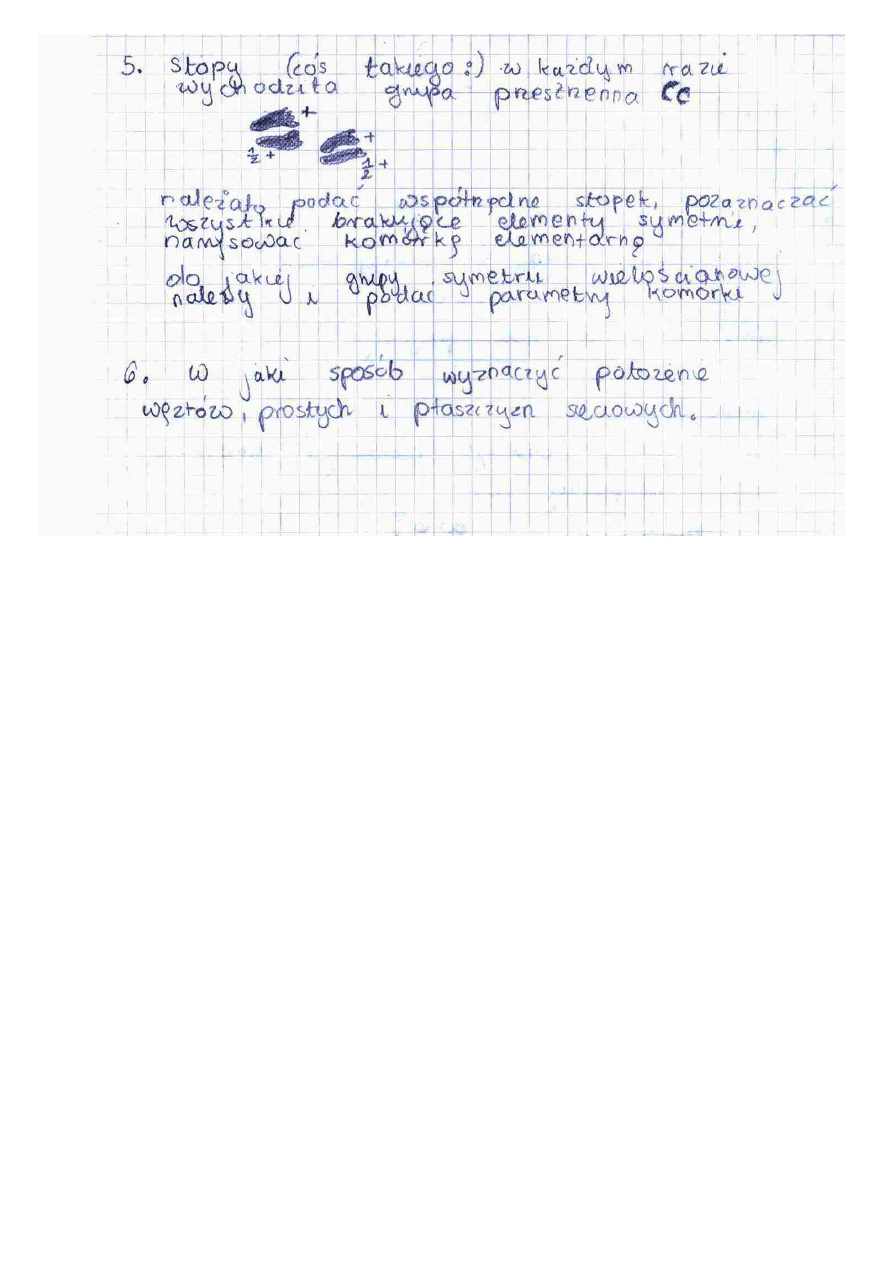 5. Stopy (coś takiego :) w każdym razie
wychodziła grupa przestrzenna Cc
+
1/2 + +
1/2 +
należało podać współrzędne stopek, pozaznaczać
wszystkie brakujące elementy symetrii,
narysować komórkę elementarną
do jakiej grupy symetrii wielościanowej
należy i podać parametry komórki
6. W jaki sposób wyznaczyć położenie
węzłów, prostych i płaszczyzn sieciowych.